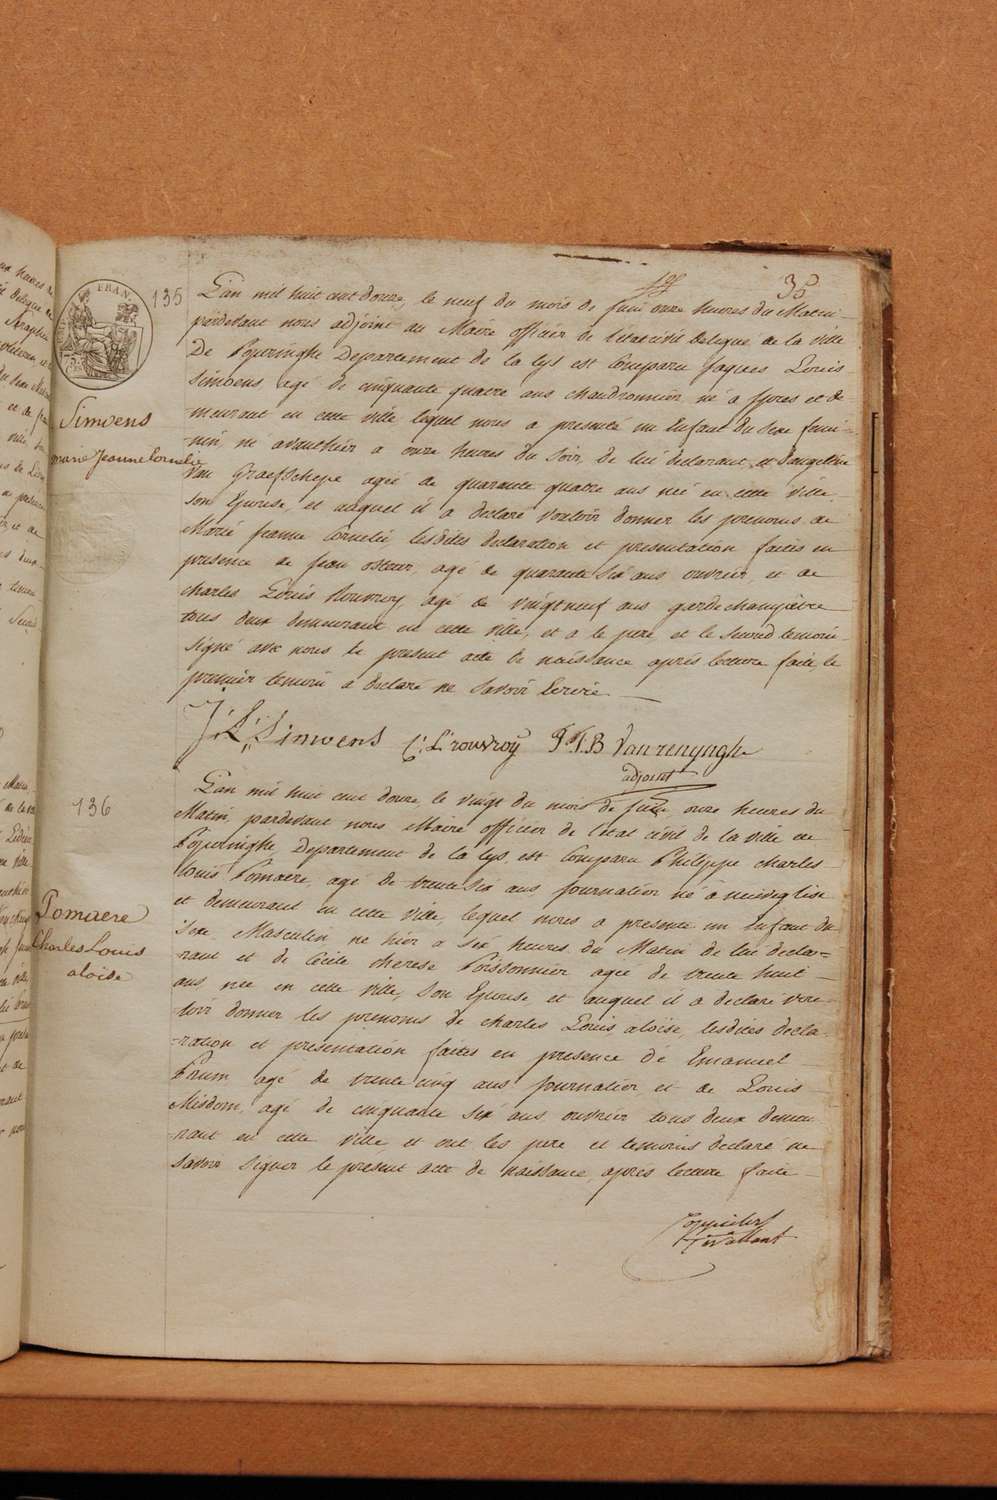 35
135
Simoens
marie Jeanne Cornelie
L'an mil huit cent douze, le neuf du mois de Juin onze heures du Matin
pardevant nous adjoint au Maire officier de l'état civil delegué de la ville
De Poperinghe Departement de la Lys est Comparu Jaques Louis
Simoens agé de cinquante quatre ans chaudronnier né à Ypres et de-
meurant en cette ville lequel nous a presenté un Enfant du Sexe femi-
-nin, né avanthier à onze heures du soir, de lui declarant et d'angeline
Van Graefschepe agée de quarante quatre ans née en cette ville,
son Epouse, et auquel il a declaré vouloir donner les prenoms de
Marie Jeanne Cornelie, lesdites declaration et presentation faites en
presence de Jean osteur, agé de quarante six ans ouvrier et de
charles Louis Rouvroy agé de vingt neuf ans garde champètre
tous deux demeurant en cette ville, et a le pere et le second temoin
signé avec nous le present acte de naissance après lecture faite, le
premier temoin a declaré ne savoir Ecrire
J: L: Simoens C: L: rouvroy P.T.B Vanrenynghe
adjoint
136
Pomaere
Charles Louis
aloïse
L'an mil huit cent douze, le vingt du mois de Juin onze heures du
Matin, pardevant nous Maire officier de l'etat civil de la ville de
Poperinghe, Departement de la Lys, est Comparu Philippe charles
Louis Pomaere, agé de trente six ans, journalier né à neuveglise
et demeurant en cette ville, lequel nous a presenté un Enfant du
Sexe Masculin né hier à six heures du Matin de lui decla-
rant et de Cécile therese Poissonnier agée de trente huit
ans née en cette ville, son Epouse et auquel il a declaré vou-
-loir donner les prenoms de charles Louis aloïse, lesdites decla-
-ration et presentation faites en presence de Emanuel
Prum agé de trente cinq ans journalier et de Louis
Misdom, agé de cinquante six ans ouvrier tous deux demeu
rant en cette ville et ont les pere et temoins declaré ne
savoir signer le present acte de naissance, après lecture faite